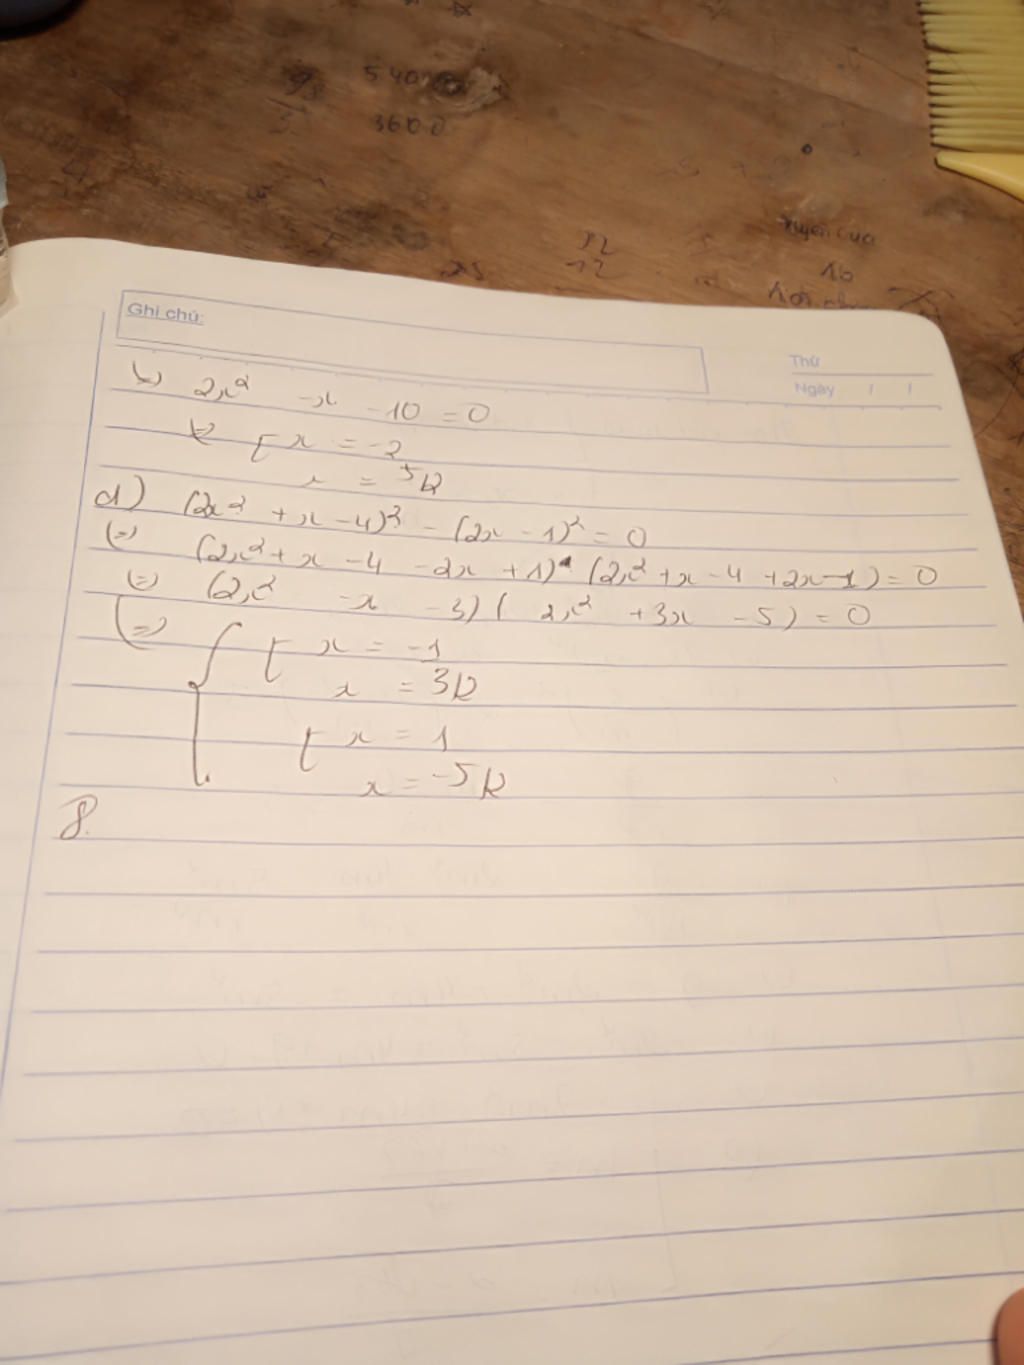 540
3600
12
12
25
16
Ghi chú:
Thứ
Ngày / /
b) 2x² - x - 10 = 0
⇔ [ x = -2
x = 5/2
d) (2x² + x - 4)² - (2x - 1)² = 0
(=) (2x² + x - 4 - 2x + 1) (2x² + x - 4 + 2x - 1) = 0
(=) (2x² - x - 3) ( 2x² + 3x - 5) = 0
(=) { [ x = -1
x = 3/2
[ x = 1
x = -5/2
8.